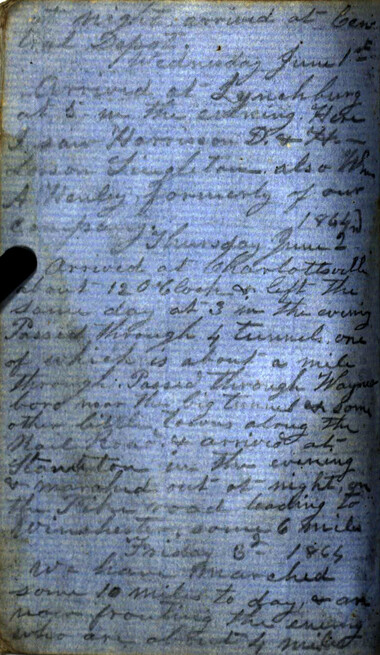 at night arrived at Cen
tral Depot.
Wednesday June 1st
Arrived at Lynchburg
at 5 in the evening. Here
I saw Harrison D. & 
Singleton also Wm
A Henley formerly of our
Company] 1864]
Thursday June 2nd
Arrived at Charlottsville
about 12 O'Clock & left the
same day at 3 in the evening
Passed through 4 tunnels one
of which is about a mile
through. Passed through Waynes
boro near the big tunnel & some
other little towns along the
Rail Road & arrived at
Staunton in the evening
& marched out at night on
the road leading to
Winchester some 6 mile
Friday 3d 1864
We have marched
some 10 miles to day, & are
now fronting the enemy
who are about 4 miles